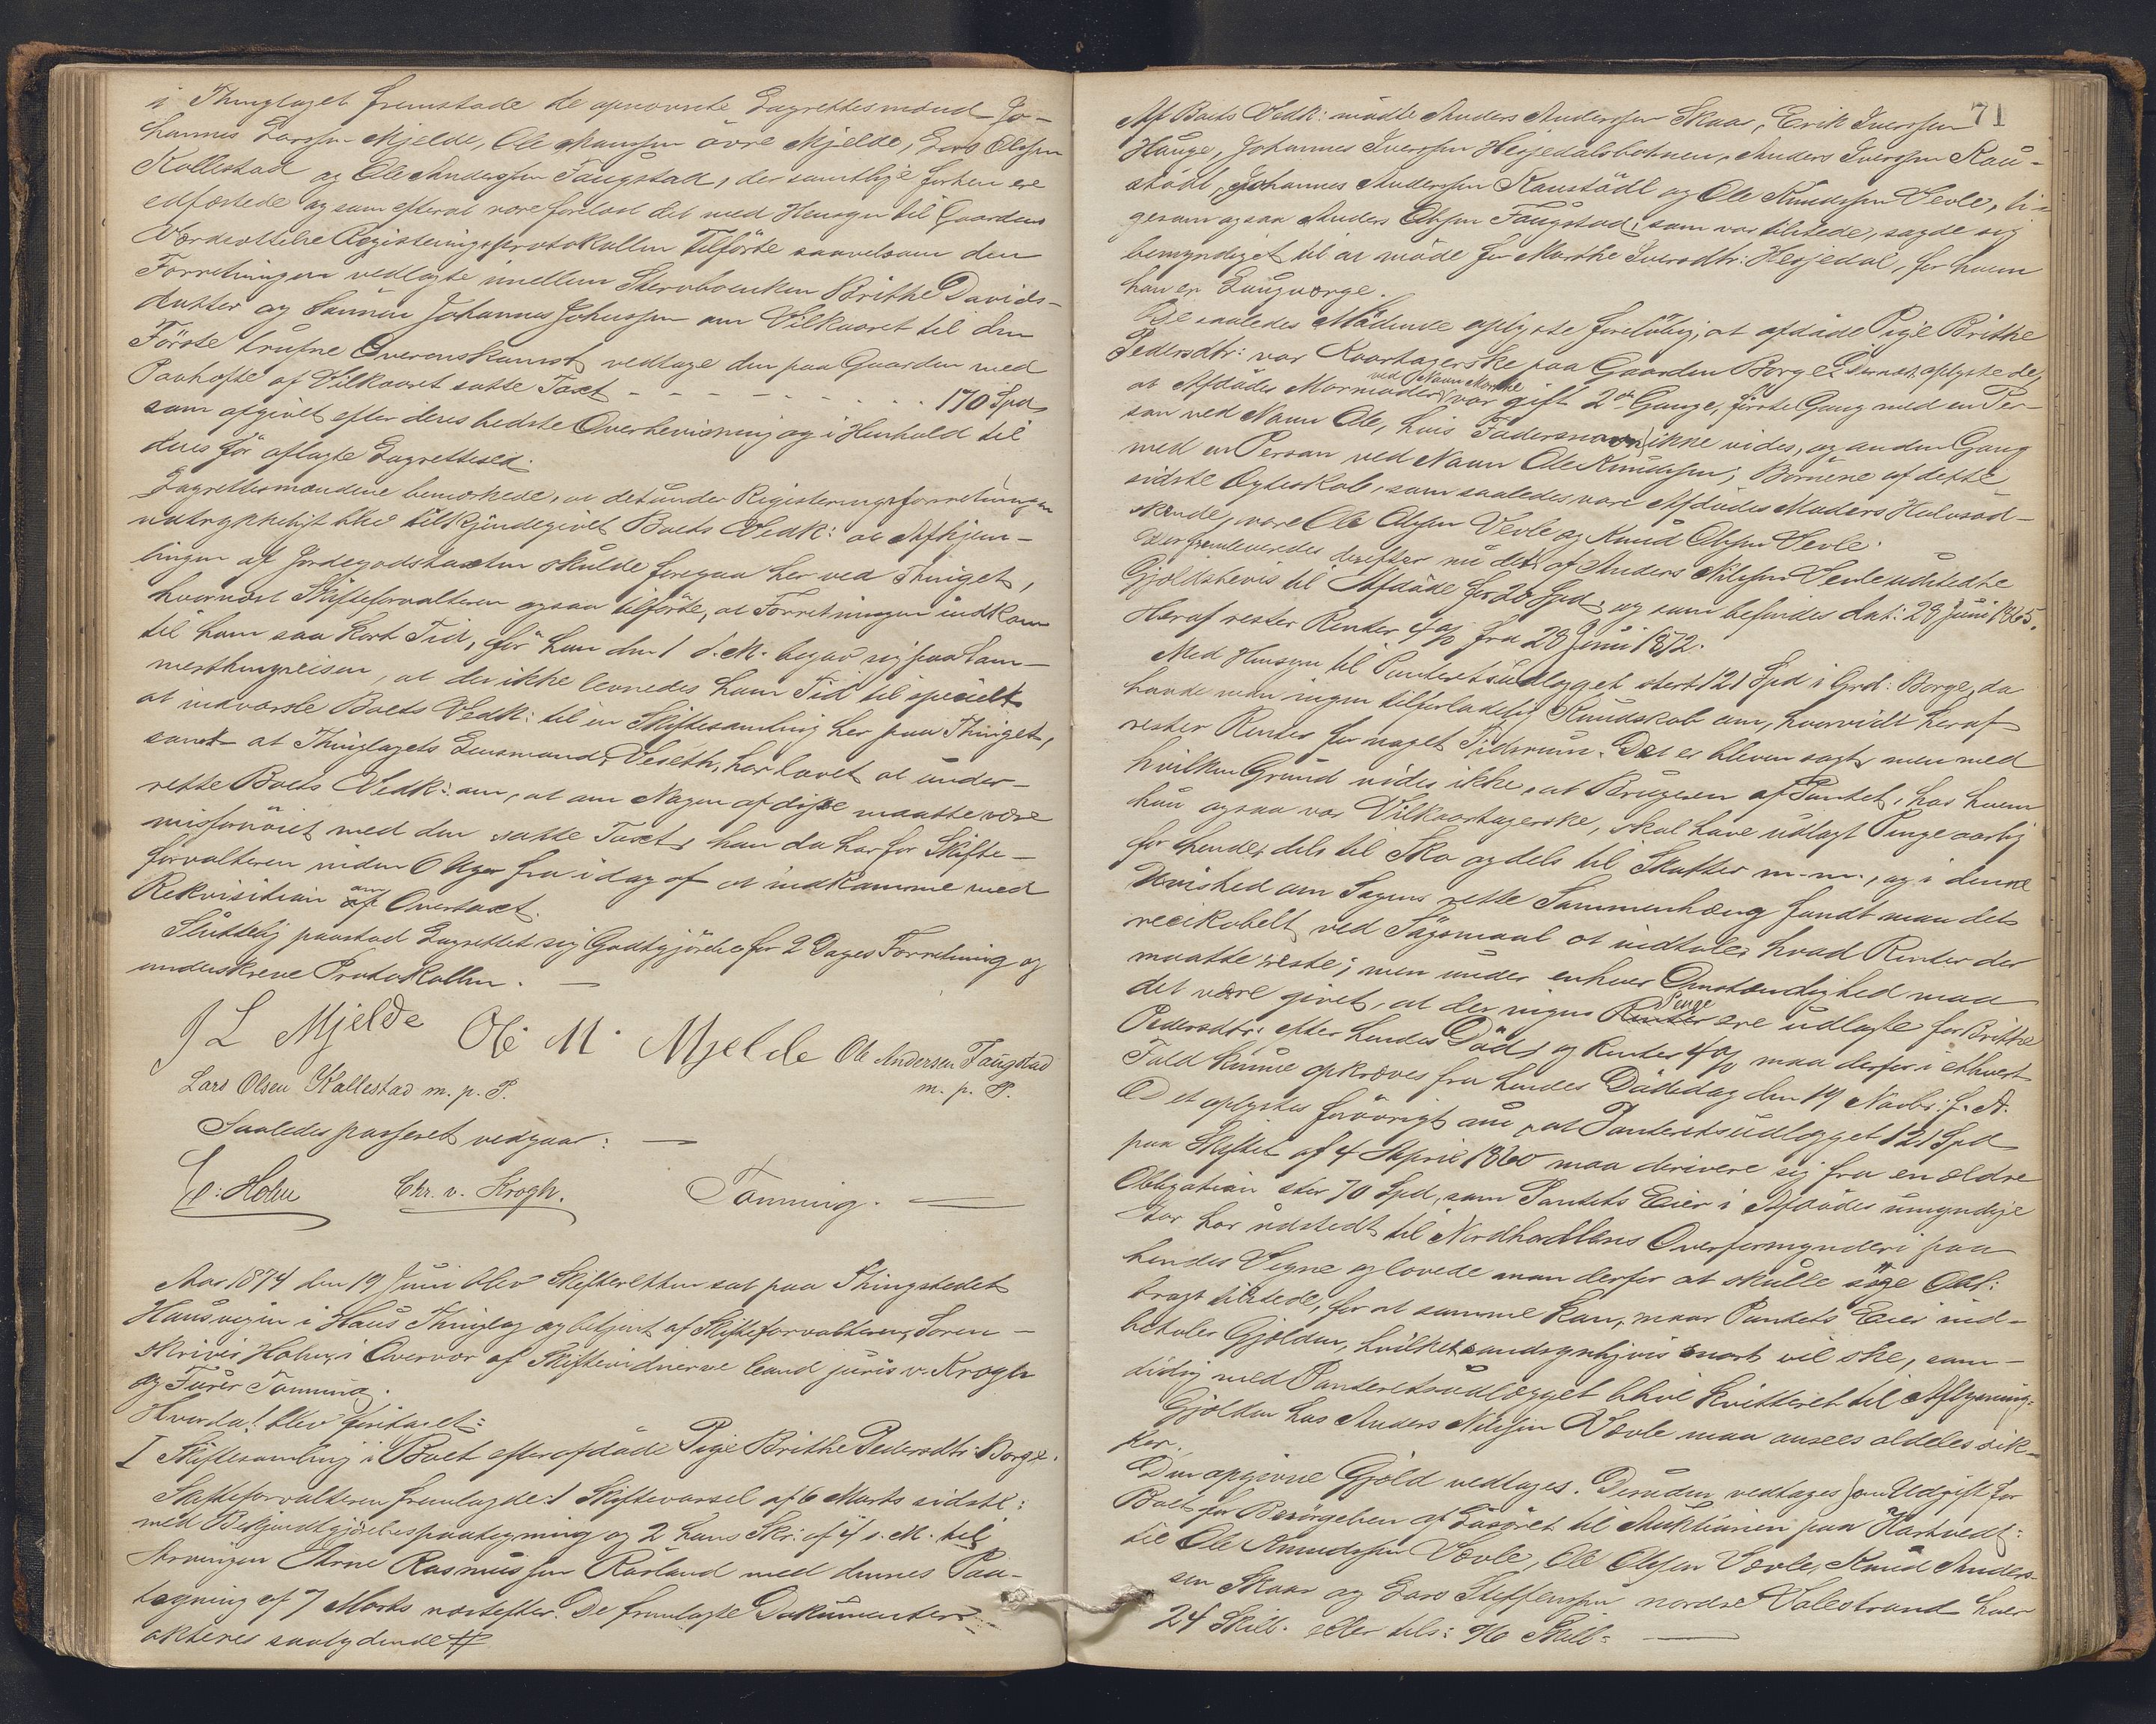 i Thinglaget fremstode de opnævnte Lagrettesmænd Jo-
hannes Larssen Mjelde, Ole Monssen övre Mjelde, Lars Olssen
Kallestad og Ole Anderssen Faugstad, der samtlige forhen ere
edfæstede og som efterat være forelæst det med Hensyn til Gaardens
Værdsættelse Registeringsprotokollen Tilförte saavelsom den
Forretningen vedlagte imellem Stervboenken Brithe Davids-
datter og Sønnen Johannes Johnssen om Vilkaaret til den
Förste trufne Overenskomst vedtage den paa Gaarden med
Paahefte af Vilkaaret satte Taxt - - - - - - - - 170 Spd,
som afgivet efter deres bedste Overbevisning og i Henhold til
deres för aflagte Lagrettesed.
Lagrettesmændene bemærkede, at det under Registeringsforretningen
udtrykkeligt blev tilkjendegivet Boets Vedk: at Afhjem-
lingen af Jordegodstaxten skulde foregaa her ved Thinget,
hvornæst Skifteforvalteren ogsaa tilförte, at Forretningen indkom
til ham saa kort Tid, för han den 1 d. M. begav sig paa Som-
merthingreisen, at der ikke levnedes ham Tid til specielt
at indvarsle Boets Vedk: til en Skiftesamling her paa Thinget,
samt at Thinglagets Lensmand, Veseth, har lovet at under-
rette Boets Vedk: om, at om Nogen af disse maatte være
misfornöiet med den satte Taxt, han da har for Skifte-
forvalteren inden 6 Uger fra i dag af at indkomme med
Rekvisition om Overtaxt.
Sluttelig paastod Lagrettet sig Godtgjörelse for 2 Dages Forretning og
underskreve Protokollen. —
J L Mjelde Ole M. Mjelde Ole Andersen Faugstad
Lars Olsen Kallestad m. p. P. m. p. P.
Saaledes passeret vedgaar: —
C: Holm Chr. v. Krogh. Tonning. —
Aar 1874 den 19 Juni blev Skifteretten sat paa Thingstedet
Hausvigen i Haus Thinglag og betjent af Skifteforvalteren, Soren-
skriver Holm, i Overvær af Skiftevidnerne Cand juris v. Krogh
og Furer Tonning.
Hvorda! blev foretaget:
I Skiftesamling i Boet efter afdöde Pige Brithe Pedersdtr: Borge.
Skifteforvalteren fremlagde: 1 Skiftevarsel af 6 Marts sidstl:
med Bekjendtgjörelsespaategning og 2 hans Skr: af 4 s. M. til
Arvingen Arne Rasmussen Rösland med dennes Paa-
tegning af 7 Marts næstefter. De fremlagte Dokumenter
akteres saalydende #
71
Af Boets Vedk: mödte Anders Anderssen Skaar, Erik Iverssen
Hauge, Johannes Iverssen Hesjedalsbotnen, Anders Iverssen Kau-
stödl, Johannes Anderssen Kaustödl og Ole Knudssen Sevle, li-
gesom ogsaa Anders Olssen Faugstad, som var tilstede, sagde sig
bemyndiget til at möde for Marthe Iversdtr: Hesjedal, for hvem
han er Laugværge.
De saaledes Mödende oplyste foreløbig, at afdöde Pige Brithe
Pedersdtr: var Kaartagerske paa Gaarden Borge. Dernæst oplyste de,
at Afdödes Mormoder ved Navn Marthe var gift 2de Gange, förste Gang med en Per-
son ved Navn Ole, hvis Fadersnavn ikke vides, og anden Gang
med en Person ved Navn Ole Knudssen; Börnene af dette
sidste Ægteskab, som saaledes vare Afdödes Moders Halvsöd-
skende, vare Ole Olssen Sevle og Knud Olssen Sevle.
Der fremleveredes derefter nu det af Anders Nilssen Sevle udstedte
Gjeldsbevis til Afdöde for 20 Spd, og som befindes dat: 28 Juni 1865.
Heraf rester Renter 4% fra 28 Juni 1872.
Med Hensyn til Panteretsudlægget stort 121 Spd i Grd: Borge, da
havde man ingen tilforladelig Kundskab om, hvorvidt heraf
rester Renter for noget Tidsrum. Det er bleven sagt, men med
hvilken Grund vides ikke, at Brugeren af Pantet, hos hvem
hun ogsaa var Vilkaartagerske, skal have udlagt Penge aarlig
for hende, dels til Sko og dels til Skatter m. m., og i denne
Uvished om Sagens rette Sammenhæng fandt man det
ved Sögsmaal at indtale, hvad Renter der
maatte reste; men under enhver Omstændighed maa
det være givet, at der ingen Penge ere udlagte for Brithe
Pedersdtr: efter hendes Död, og Renter 4% maa derfor i ethvert
Fald kunne opkræves fra hendes Dödsdag den 19 Novbr: f. A.
Det oplystes forövrigt nu, at Panteretsudlægget 121 Spd
paa Skiftet af 4 April 1860 maa derivere sig fra en ældre
Obligation stor 70 Spd, som Pantets Eier i Afdödes umyndige
Aar har udstedt til Nordhordlens Overformynderi paa
hendes Vegne og lovede man derfor at skulle söge Obl:
bragt tilstede, for at samme kan, naar Pantets Eier ind-
betaler Gjelden, hvilket sandsynligvis snart vil ske, sam-
tidig med Panteretsudlægget blive kvitteret til Aflysning.
Gjelden hos Anders Nilssen Sævle maa ansees aldeles sik-
ker.
Den opgivne Gjeld vedtages. Desuden vedtages som Udgift for
Boet for Besörgelsen af Lösöret til Auktionen paa Hartvedt:
til Ole Amundssen Sævle, Ole Olssen Sævle, Knud Anders-
sen Skaar og Lars Steffenssen nordre Valestrand hver
24 Skill. eller tils: 96 Skill: —